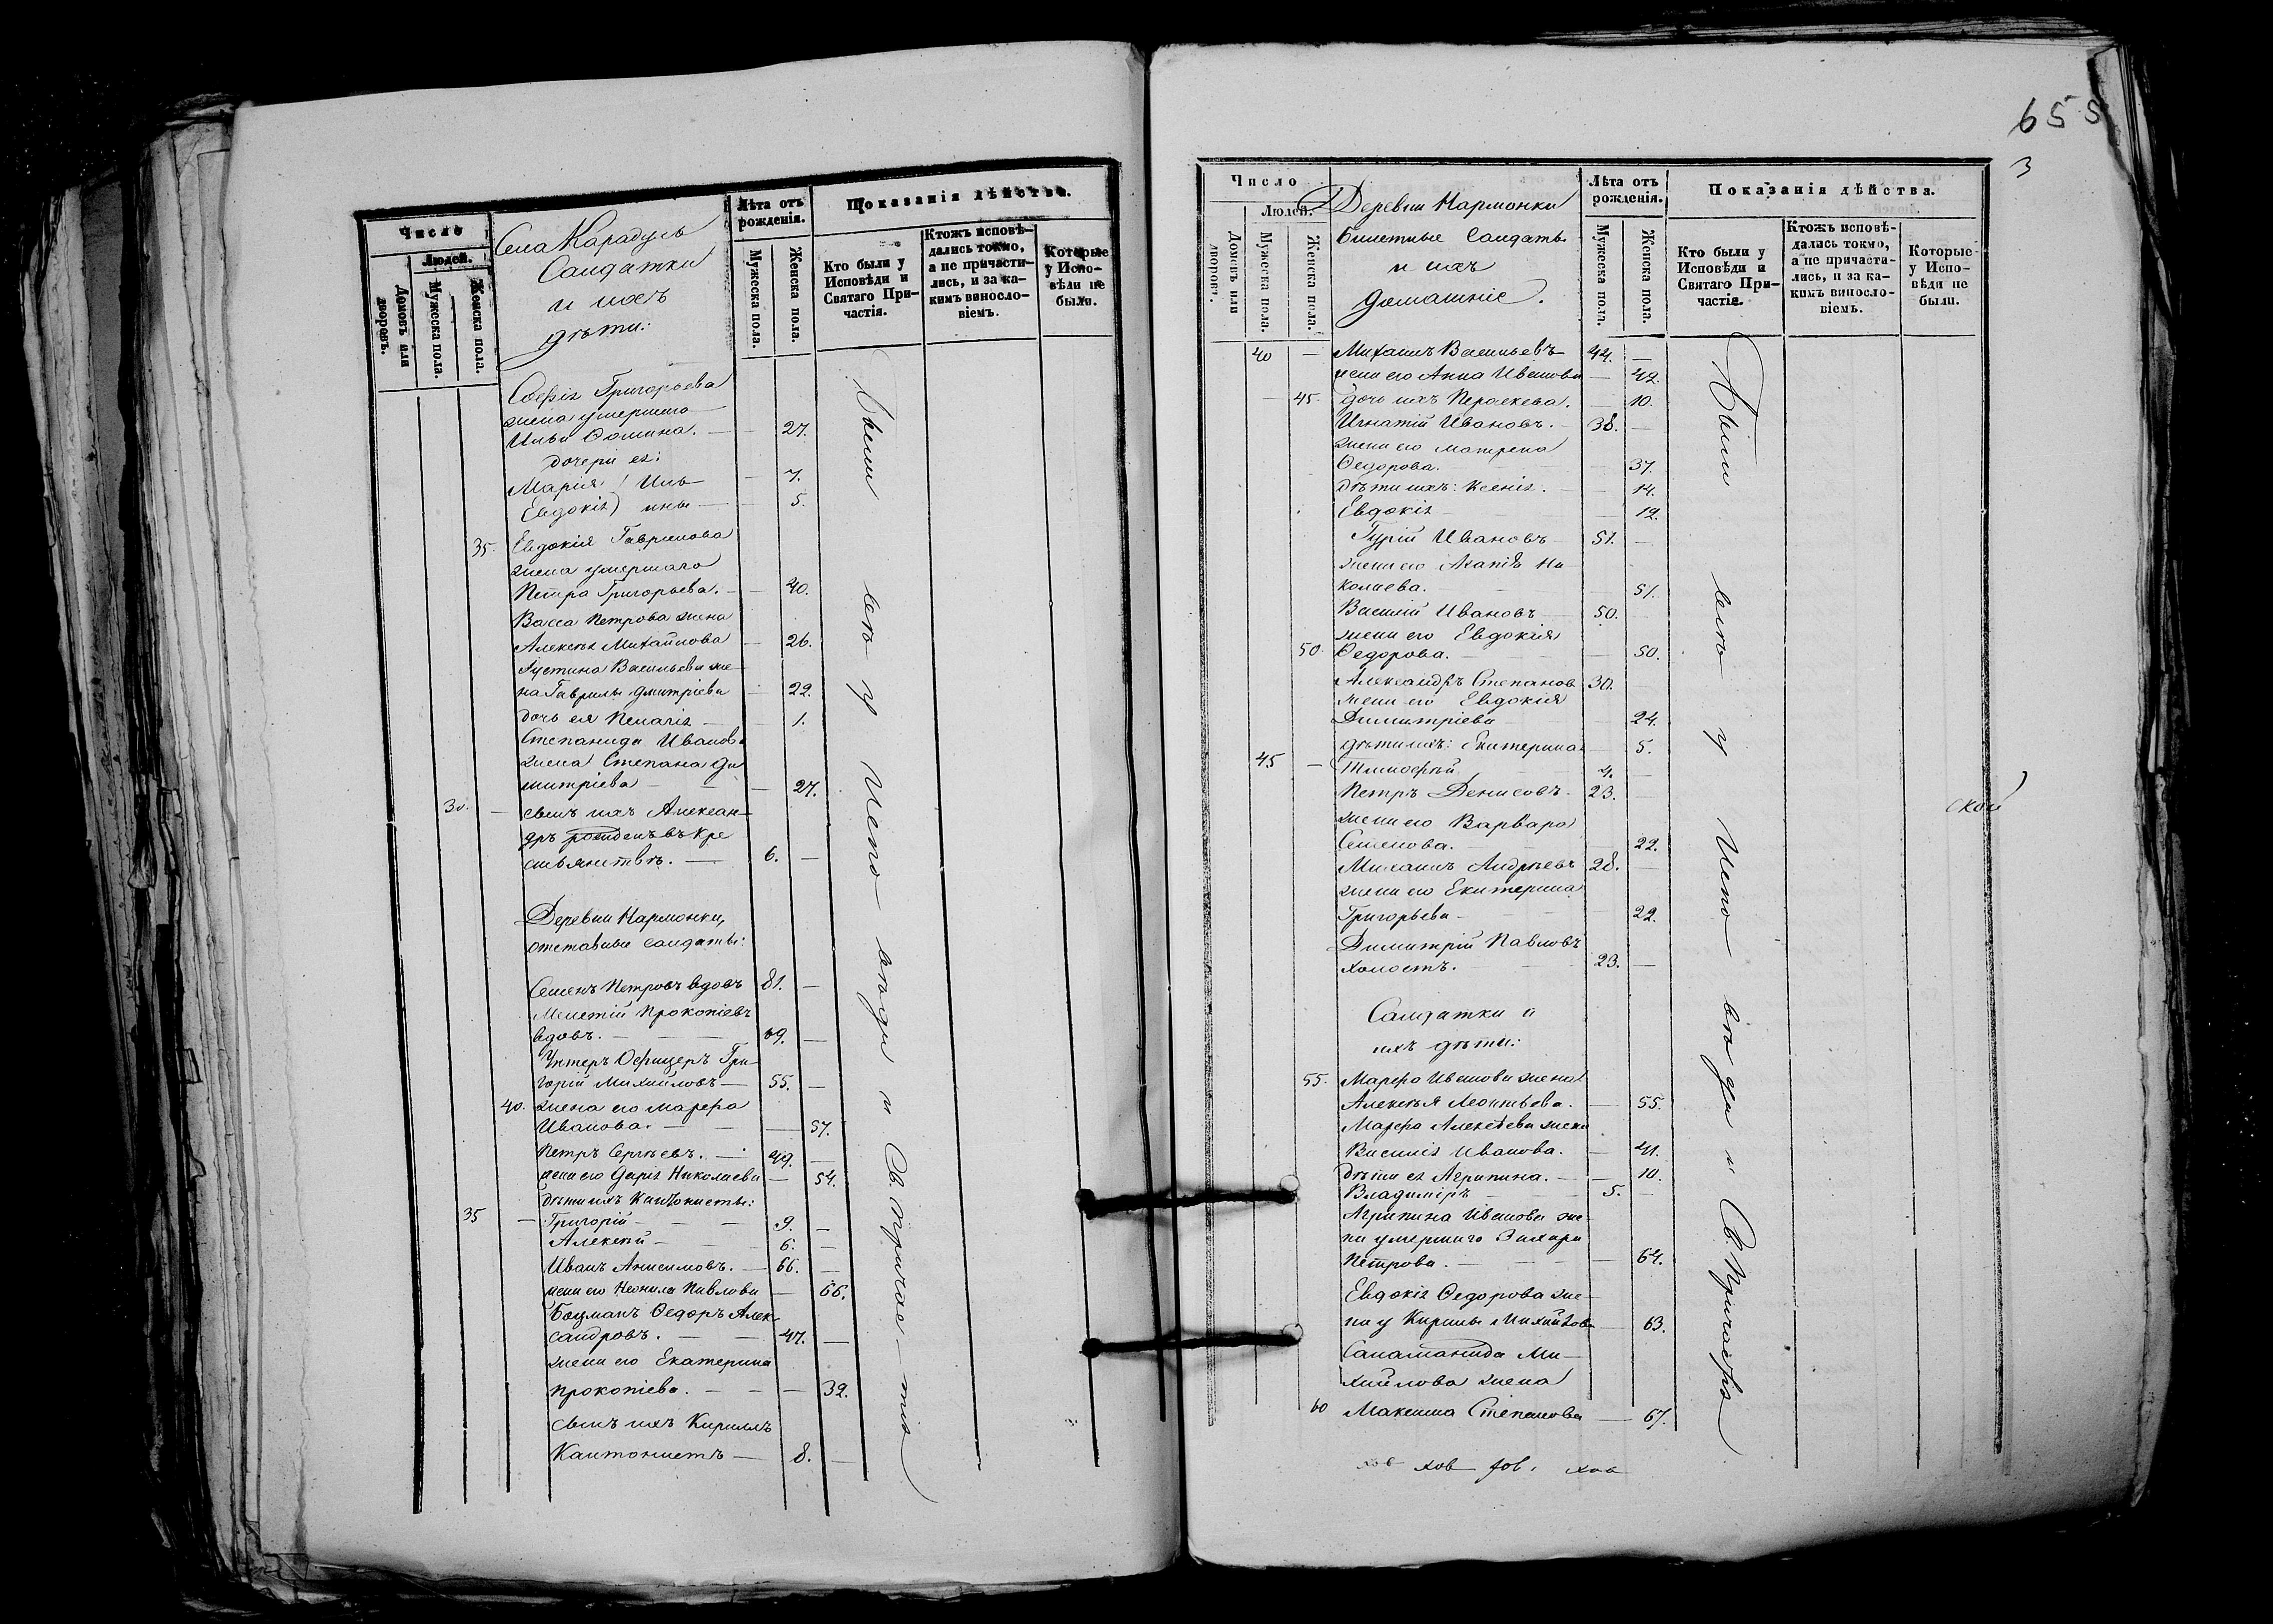 Число
Людей.
Домовъ или дворовъ.
Мужеска пола.
Женска пола.
Села Карадулъ
Солдатки
и ихъ
дѣти:
Лѣта отъ рожденія.
Мужеска пола.
Женска пола.
Показанія дѣйства.
Кто были у Исповѣди и Святаго Причастія.
Ктожъ исповѣ-
дались токмо,
а не причасти-
лись, и за ка-
кимъ винословіемъ.
Которые
у Испо-
вѣди не
были.
Софія Григорьева
жена умершаго
Ильи Фомина. — 27.
дочери ея:
Марія Иль- — 7.
Евдокія ины — 5.
35. Евдокія Гаврилова
жена умершаго
Петра Григорьева. — 40.
Васса Петрова жена
Алексѣя Михайлова — 26.
Устина Васильева же-
на Гаврилы Дмитріева — 22.
дочь ея Пелагія — 1.
Степанида Иванова
жена Степана Ди
митріева — 27.
30. — сынъ ихъ Алексан-
дръ рожденъ въ кре
стьянствѣ. — 6. —
Деревни Нармонки,
отставные солдаты:
Семенъ Петровъ вдовъ 81. —
Мелетій Прокопіевъ
вдовъ. — 69. —
Унтеръ Офицеръ Гри-
горій Михайловъ — 55. —
40. жена его Марфа
Иванова. — 57.
Петръ Сергѣевъ. — 49. —
жена его Дарія Николаева — 54.
дѣти ихъ кантонисты:
35 — Григорій — 9. —
Алексѣй — 6. —
Иванъ Анисимовъ. — 66. —
жена его Неонила Павлова — 66.
Боцманъ Федоръ Алек-
сандровъ. — 47. —
жена его Екатерина
Прокопіева. — 39.
сынъ ихъ Кириллъ
Кантонистъ — 8. —
Были всѣ у Испо-вѣди и Св. Причас-тія
655
3
Число
Людей.
Домовъ или дворовъ.
Мужеска пола.
Женска пола.
Деревни Нармонки
билетные солдаты
и ихъ
домашніе.
Лѣта отъ рожденія.
Мужеска пола.
Женска пола.
Показанія дѣйства.
Кто были у
Исповѣди и
Святаго При-
частія.
Ктожъ исповѣ-
дались токмо,
а не причасти-
лись, и за ка-
кимъ виносло-
віемъ.
Которые
у Испо-
вѣди не
были.
40 — Михаилъ Васильевъ 44. —
жена его Анна Иванова — 42.
— 45. дочь ихъ Параскева. — 10.
Игнатій Ивановъ. — 38. —
жена его Матрена
Федорова. — 37.
дѣти ихъ: Ксенія. — 14.
Евдокія — 12.
Гурій Ивановъ — 51. —
жена его Агапія Ни
колаева. — 51.
Василій Ивановъ — 50. —
жена его Евдокія
50. Федорова. — 50.
Александръ Степановъ 30. —
жена его Евдокія
Димитріева — 24.
дѣти ихъ: Екатерина — 5.
45 — Тимофей 4. —
Петръ Денисовъ — 23. —
жена его Варвара
Семенова. — 22.
Михаилъ Андреевъ 28. —
жена его Екатерина
Григорьева — 22.
Димитрій Павловъ
холостъ. — 23. —
Солдатки и
ихъ дѣти:
55. Марфа Иванова жена
Алексѣя Леонтьева. — 55.
Марфа Алексѣева жена
Василія Иванова. — 41.
дѣти ея Агрипина. — 10.
Владиміръ — 5. —
Агрипина Иванова же-
на умершаго Захара
Петрова. — 64.
Евдокія Федорова же-
на у Кирилы Михайлова — 63.
Саламанида Ми-
хайлова жена
60 Максима Степанова — 67.
Были всѣ у Испо-вѣди и Св. Причастія
ской
хов хов хов